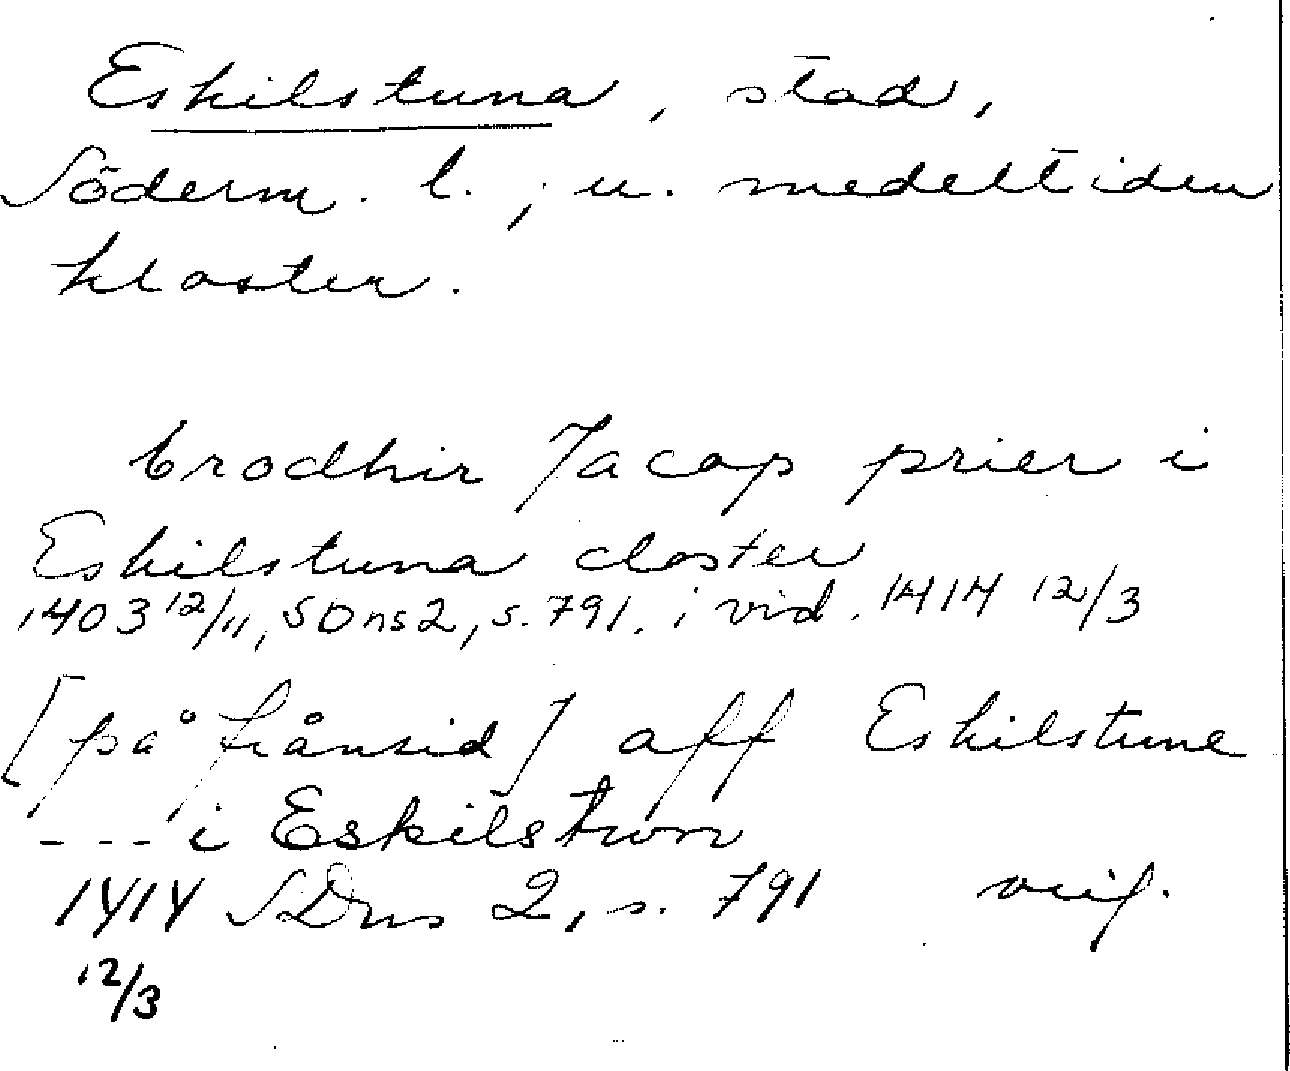 Eskilstuna, stad,
Söderm. l.; u. medeltiden
kloster.
brodhir Jacop prier i
Eskilstuna closter
1403 12/11, SDns2, s. 791. i vid. 1414 12/3
[på frånsid] aff Eskilstune
---i Eskilstwn
1414 SDns 2, s. 791
12/3